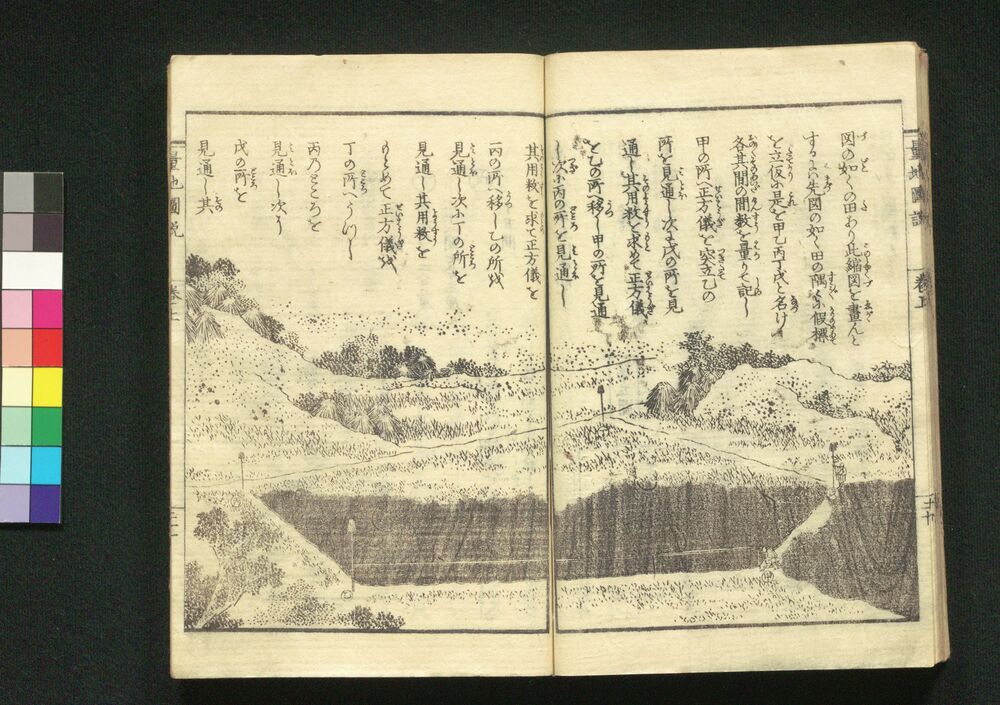 図の如くの田あり此縮図を畫んと
するには先図の如く田の隅々に假標
を立仮に是を甲乙丙丁戊と名付け
各其間の間数を量りて記し
甲の所へ正方儀を突立乙の
所を見通し次に戊の所を見
通し其用救を求めて正方儀
を乙の所へ移し甲の所を見通
し次に丙の所を見通し
其用救を求て正方儀を
丙の所へ移し乙の所を
見通し次に丁の所を
見通し其用救を
もとめて正方儀を
丁の所へうつし
丙のところを
見通し次に
戊の所を
見通し其
量地圖説
巻上
二十
量地圖説
巻上